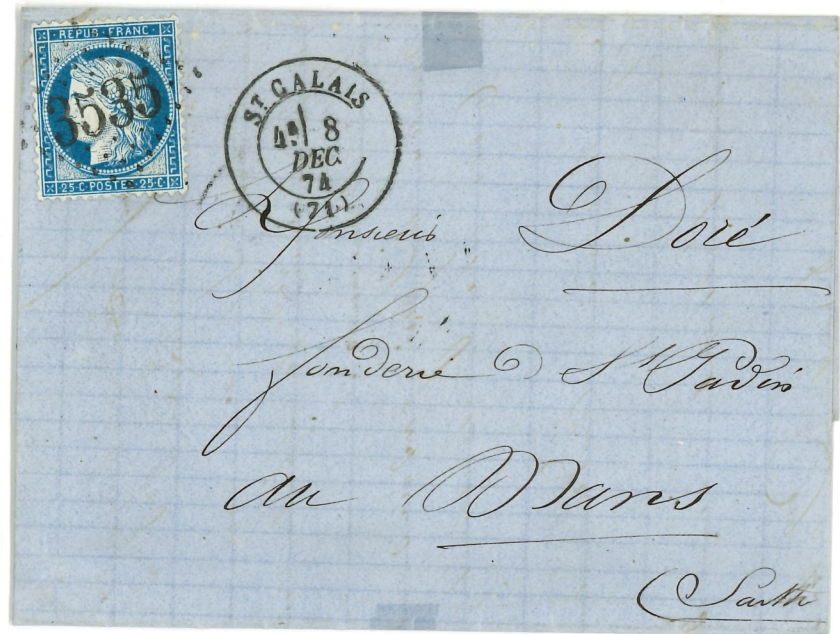 REPUB·FRANC·
3535
25·C·POSTES·25·C·
ST CALAIS
8
DEC.
74
(71)
Monsieur Doré
fonderie St Pavin
au Mans
Sarthe